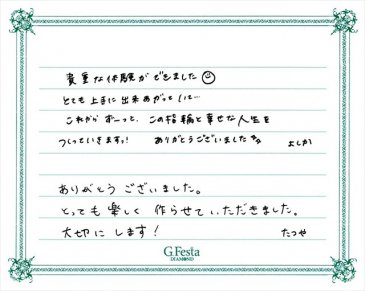 貴重な体験ができました☺
とても上手に出来あがって
これから ずーっと、この指輪と幸せな人生を
つくっていきますっ! ありがとうございました
よしか
ありがとう ございました。
とっても楽しく 作らせていただきました。
大切に します!
たつや
G.Festa
DIAMOND